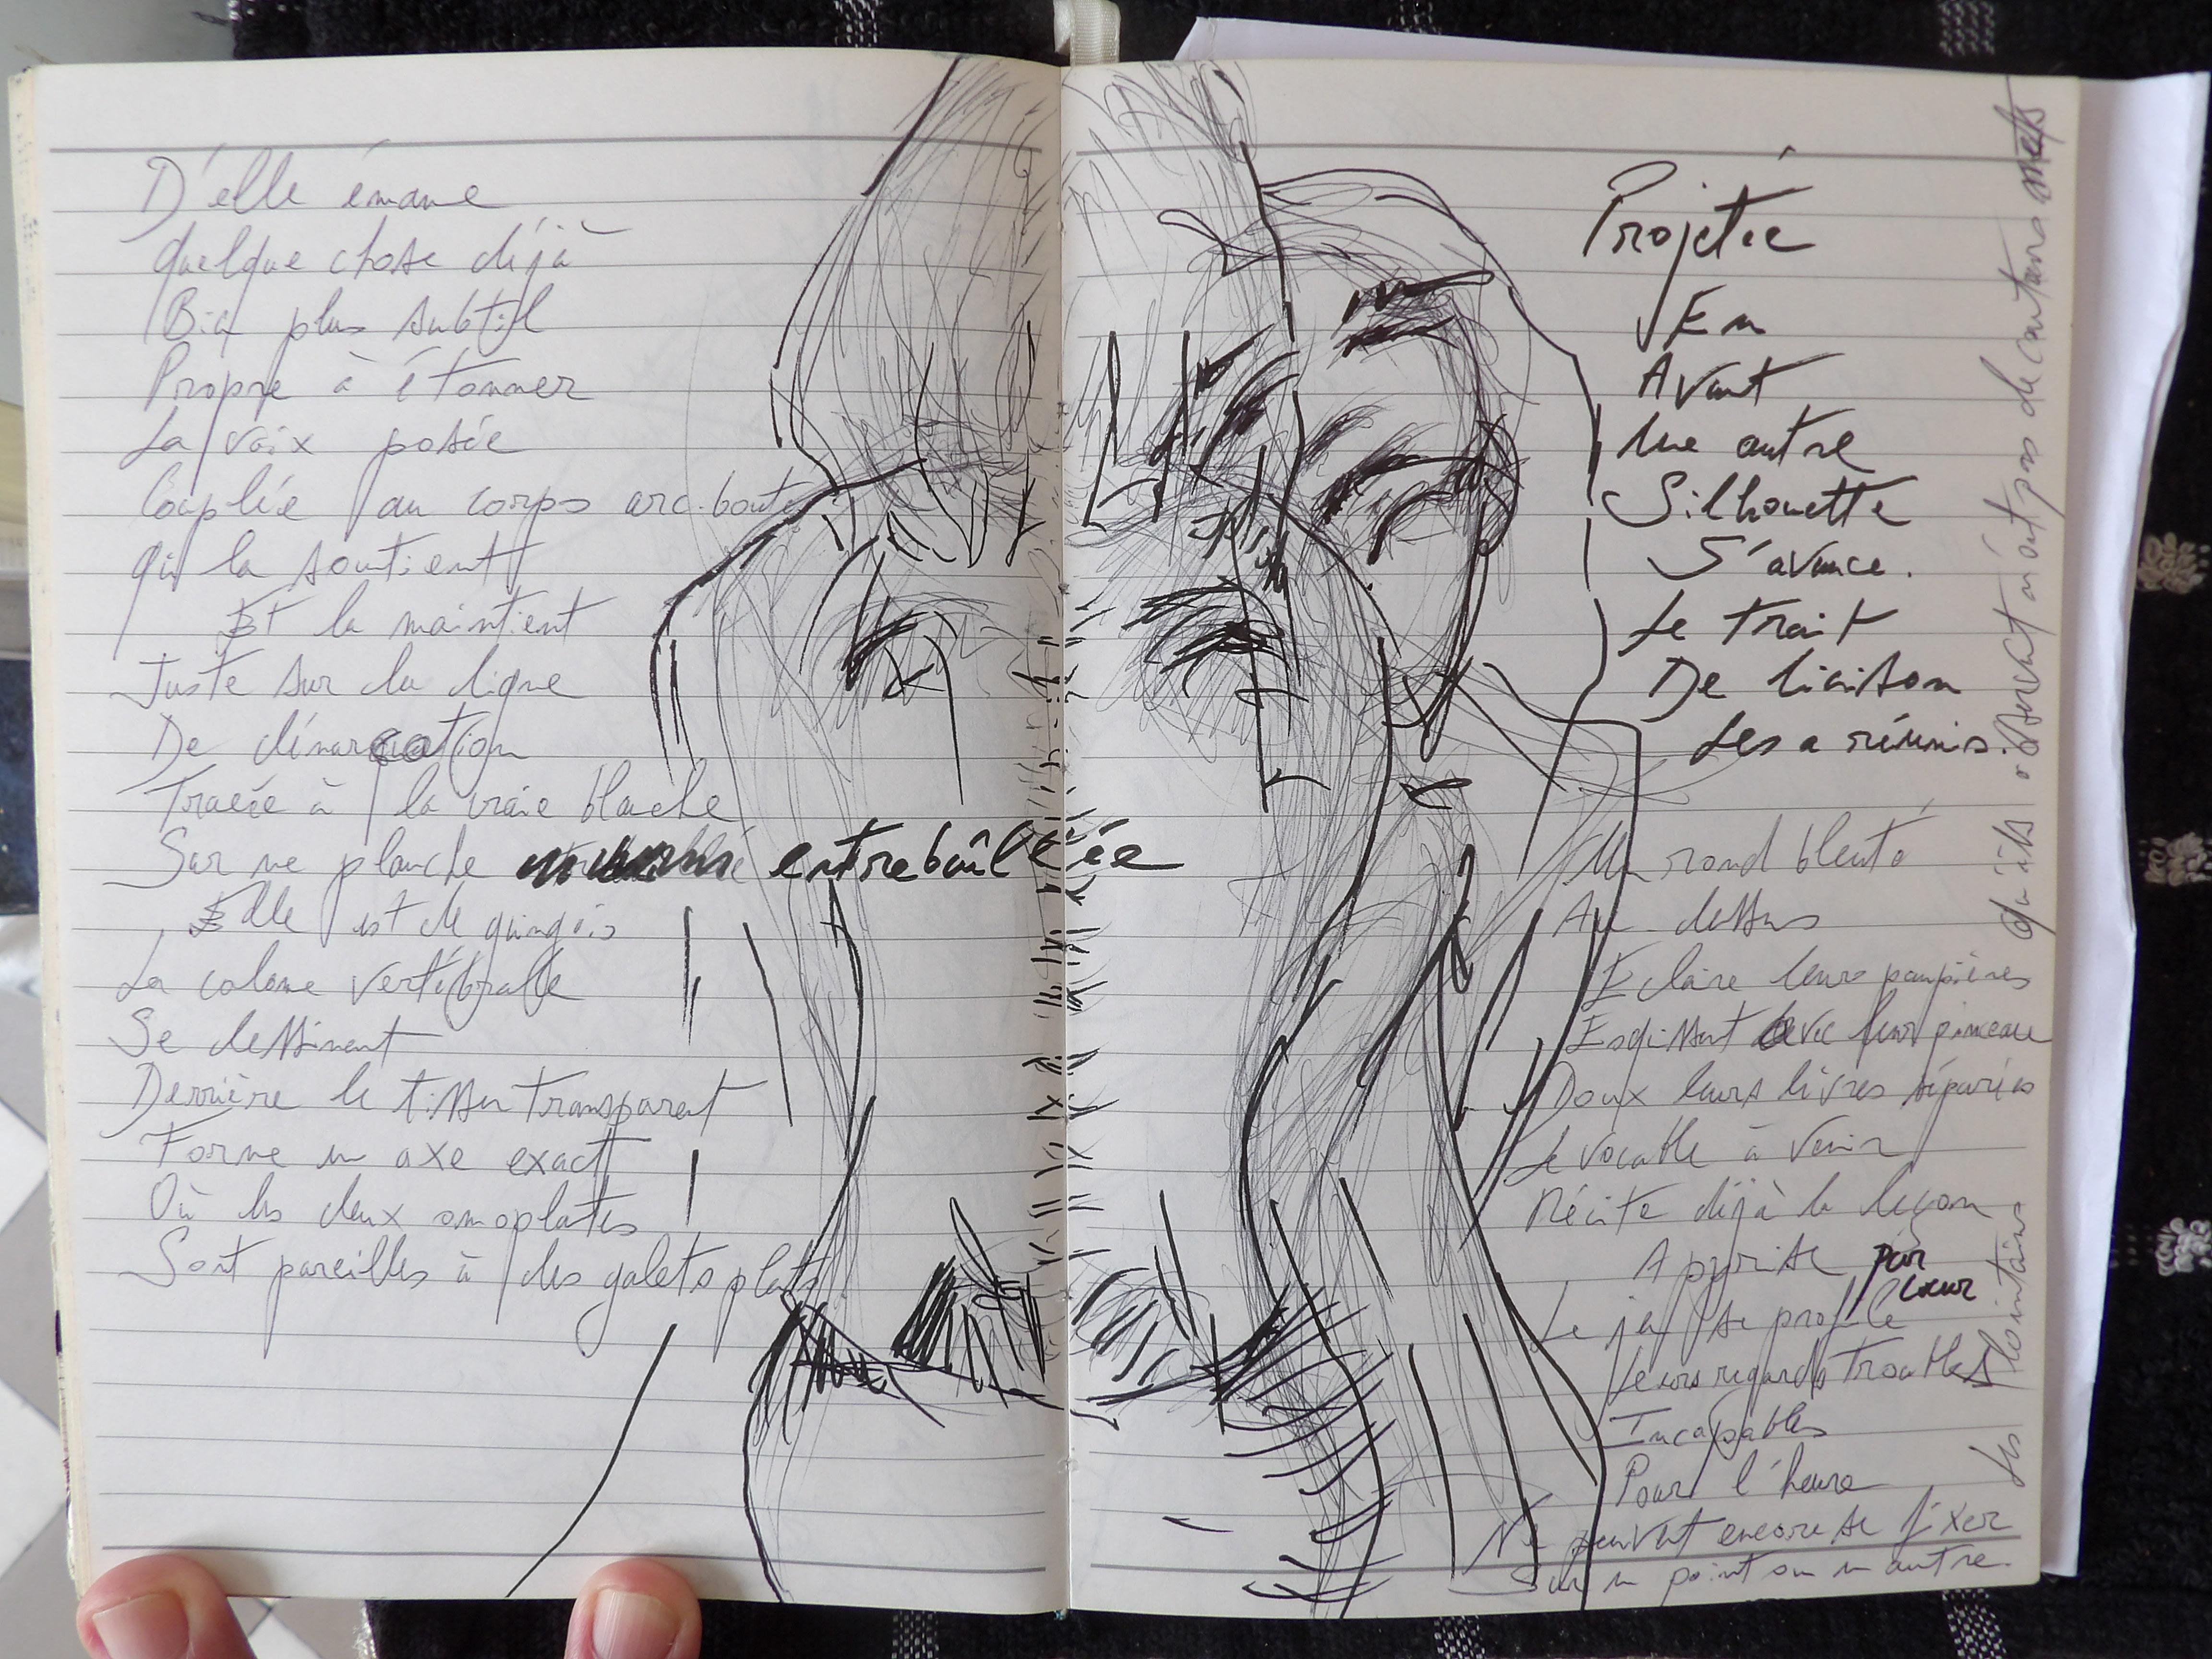 D'elle émane
quelque chose déjà
Bien plus subtil
Propre à étonner
La voix posée
Couplée au corps arc-bouté
qui la soutient
Et la maintient
Juste sur la ligne
De démarcation
Tracée à la craie blanche
Sur une planche entrebâillée
Elle est de guingois
La colone vertébralle
Se dessinent
Derrière le tissu transparent
Forme un axe exact
Où les deux omoplates
Sont pareilles à des galets plats
Projetée
En
Avant
Une autre
Silhouette
S'avance.
Le trait
De liaison
Les a réunis.
Un rond bleuté
Au-dessus
Eclaire leurs paupières
Esquissent avec leur pinceau
Doux leurs lèvres séparées
Le vocable à venir
Récite déjà la leçon
Apprise par
cœur
Le se profile
Leurs regards troubles
Incapables
Pour l'heure
Ne peuvent encore se fixer
Sur un point ou un autre.
Les lointains qu'ils observent n'ont pas de contours nets